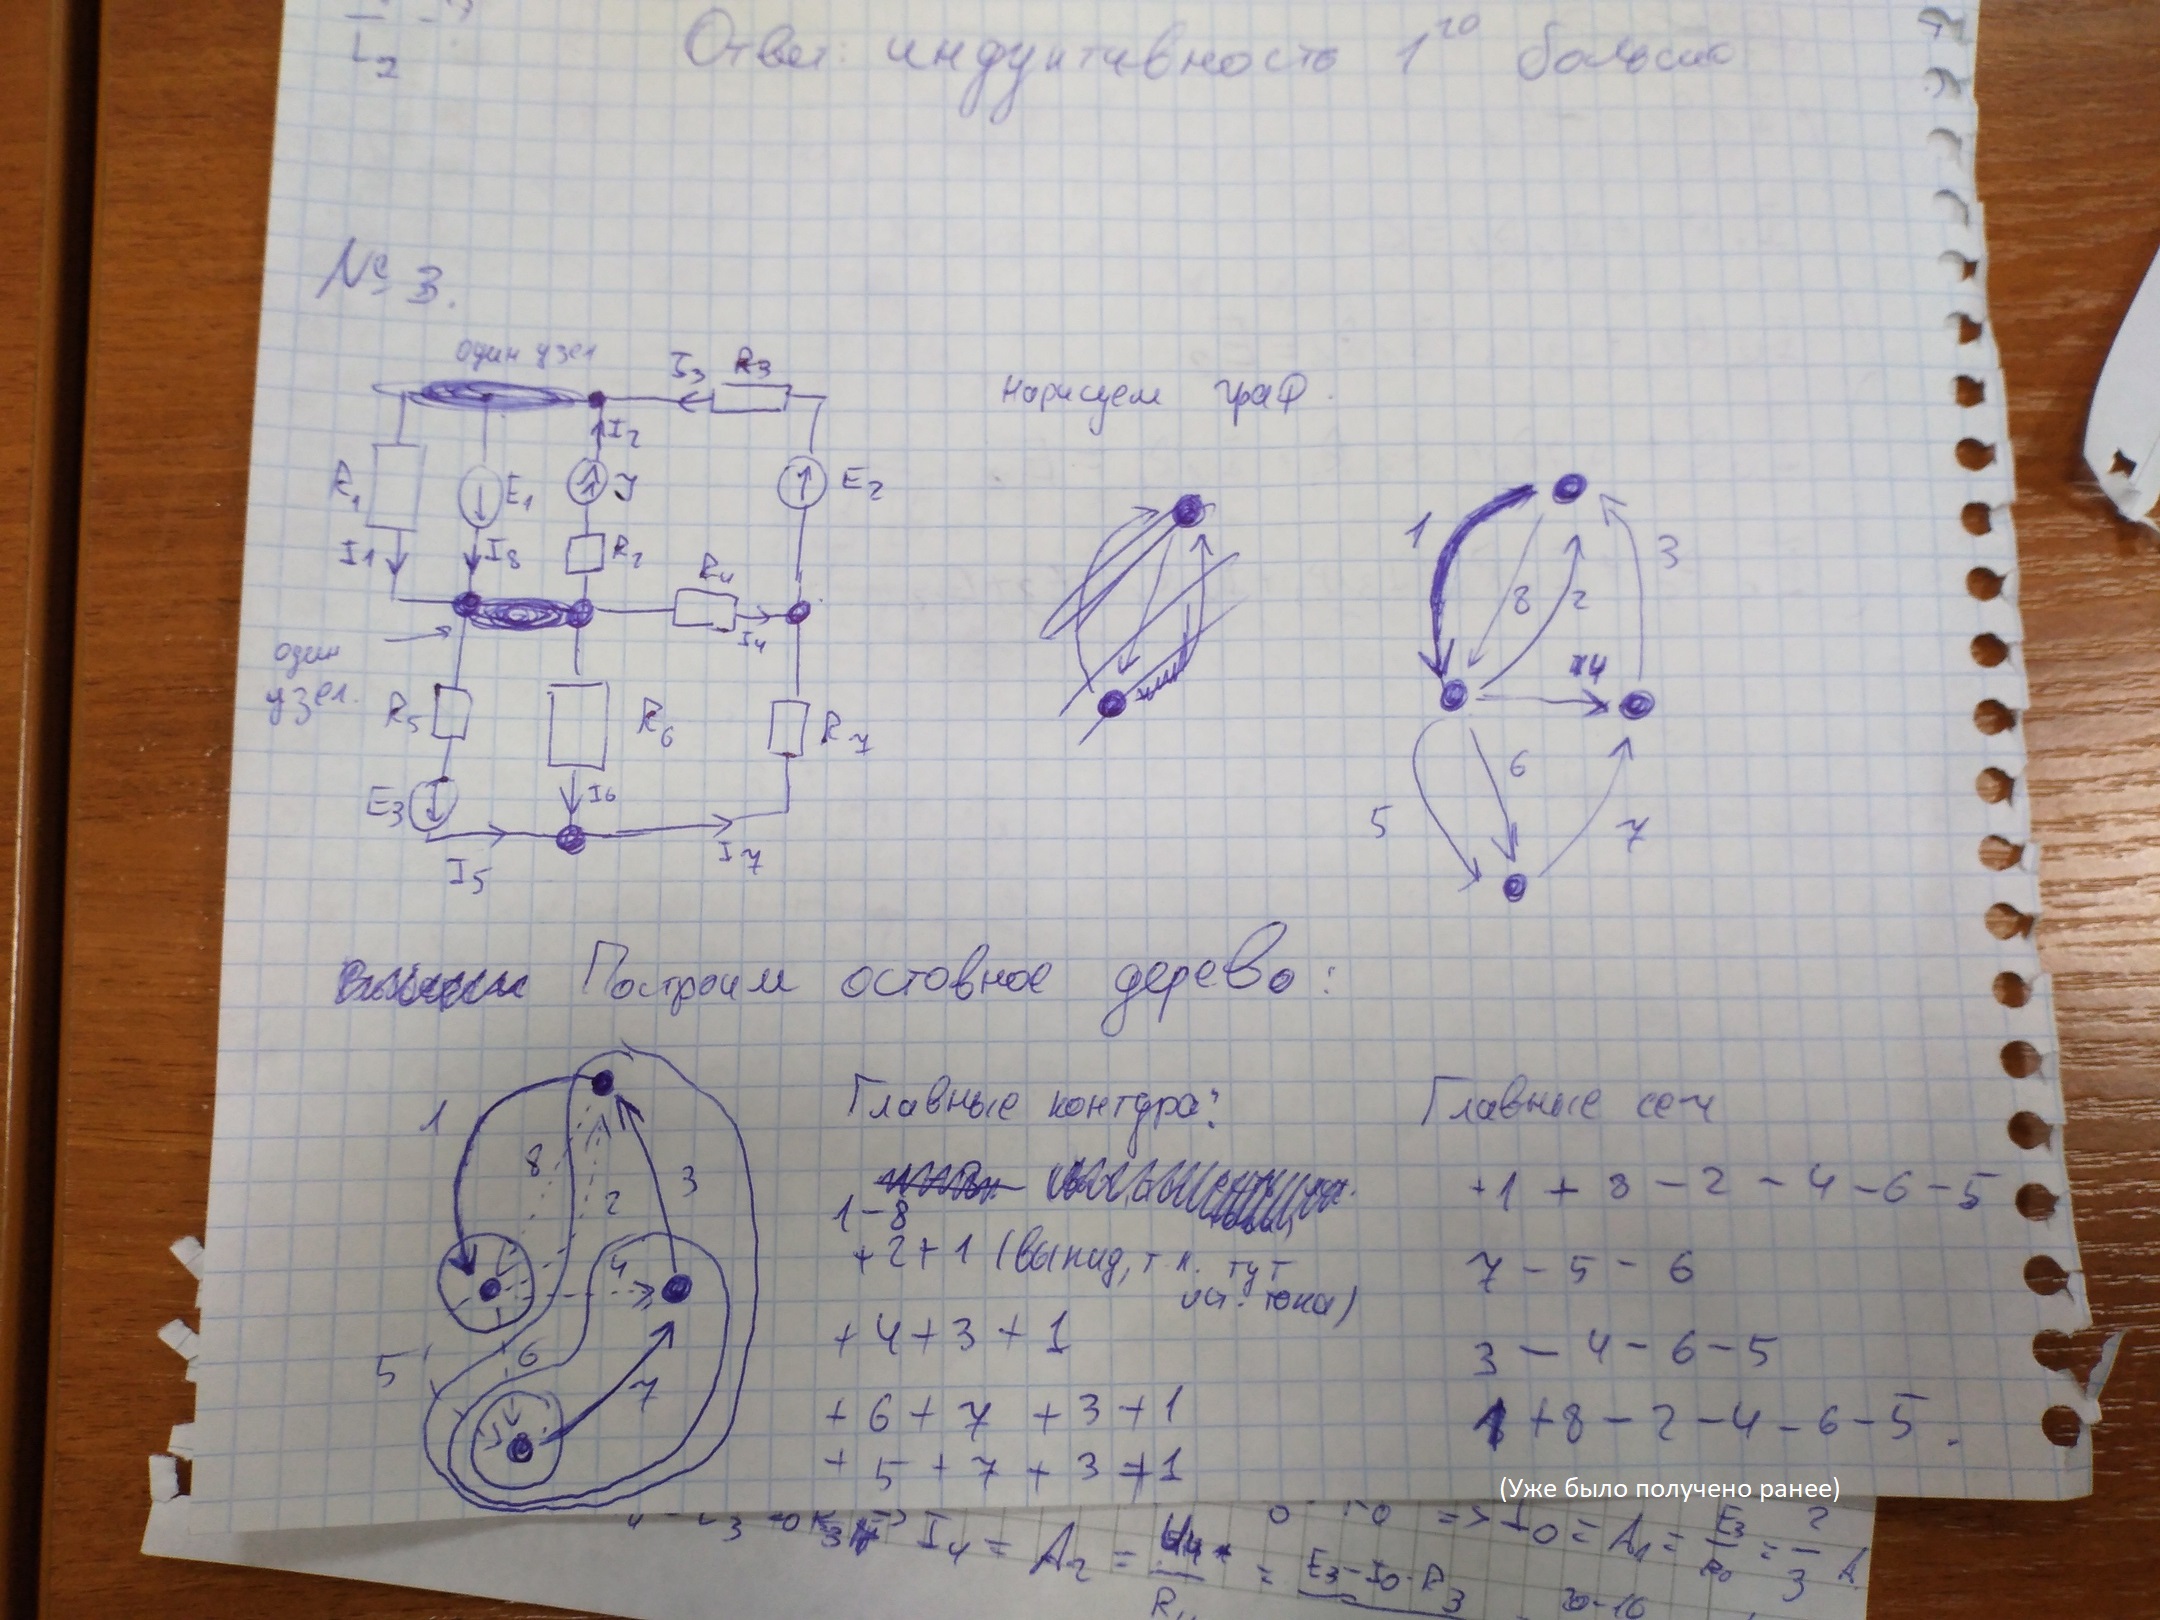 L2
Ответ: индуктивность 1го больше
№ 3.
один узел
I3 R3
R1
I1
E1
I8
I2
J
R2
E2
R4
I4
один
узел.
R5
R6
R7
E3
I6
I5
I7
Нарисуем граф.
1
8
2
3
4
6
5
7
Построим остовное дерево:
1
8
2
3
4
5
6
7
Главные контура:
1-8
+2+1 (выкид, т.к. тут
ист. тока)
+4+3+1
+6+7+3+1
+5+7+3+1
Главные сеч
+1+8-2-4-6-5
7-5-6
3-4-6-5
1+8-2-4-6-5.
(Уже было получено ранее)
I4 = A2 = U4 / R4 = E3-I0·R3
=> I0 = A1 = E3 / R0 = 2 / 3 A